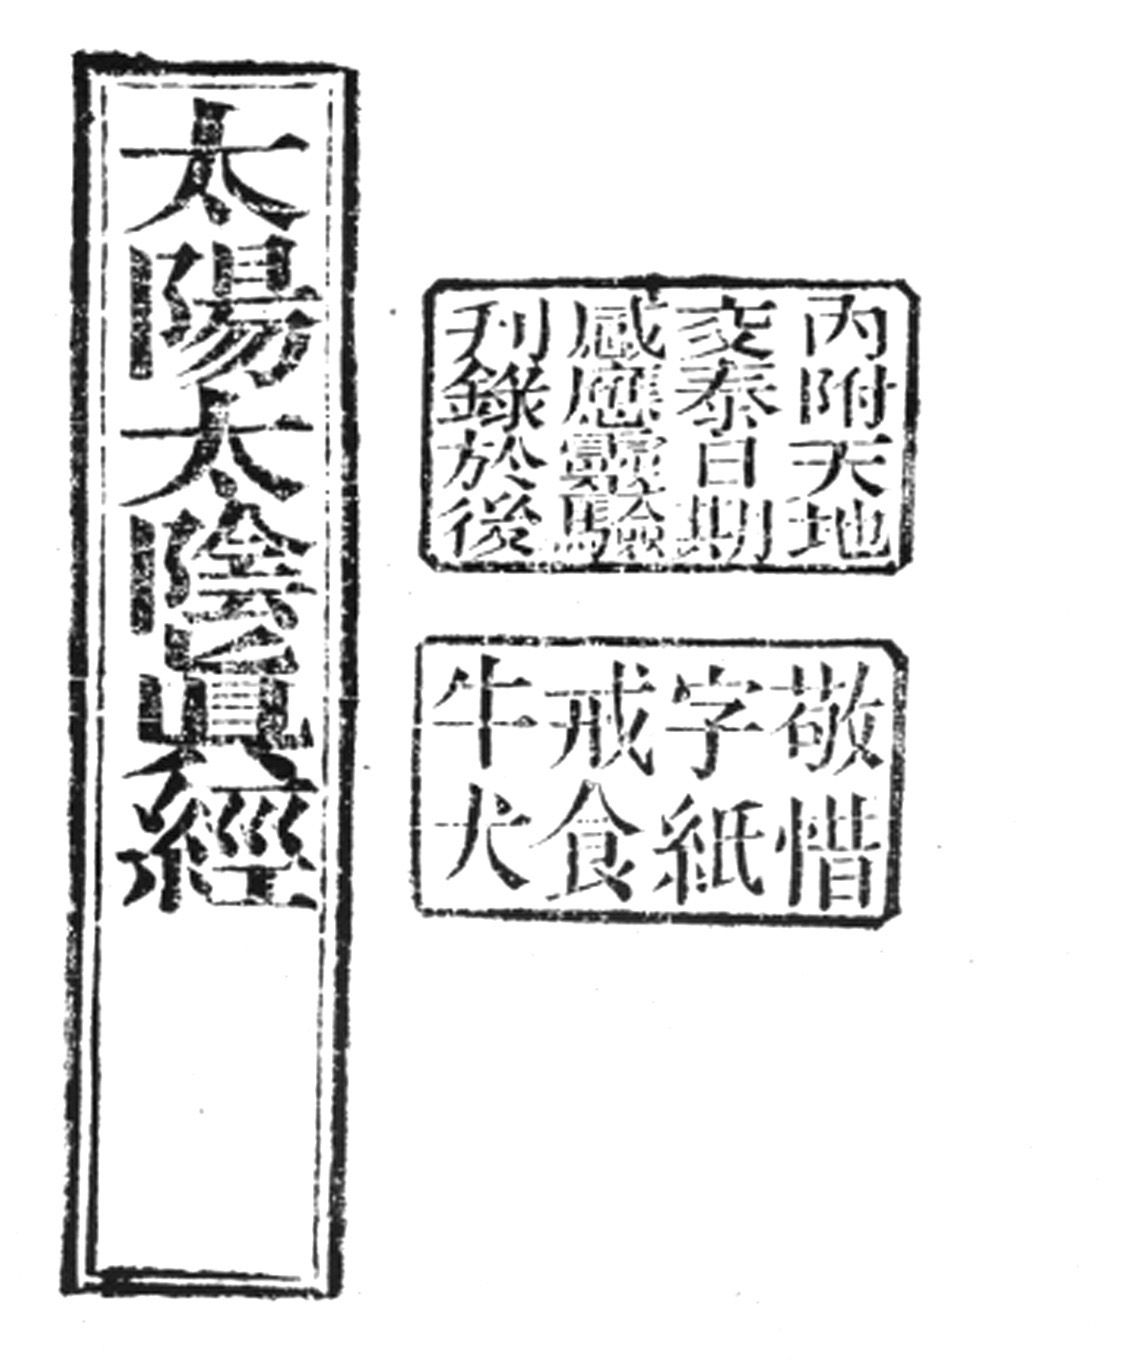 內附天地
交泰日期
感應靈驗
刋錄於後
敬惜
字紙
戒食
牛犬
太陽太陰眞經